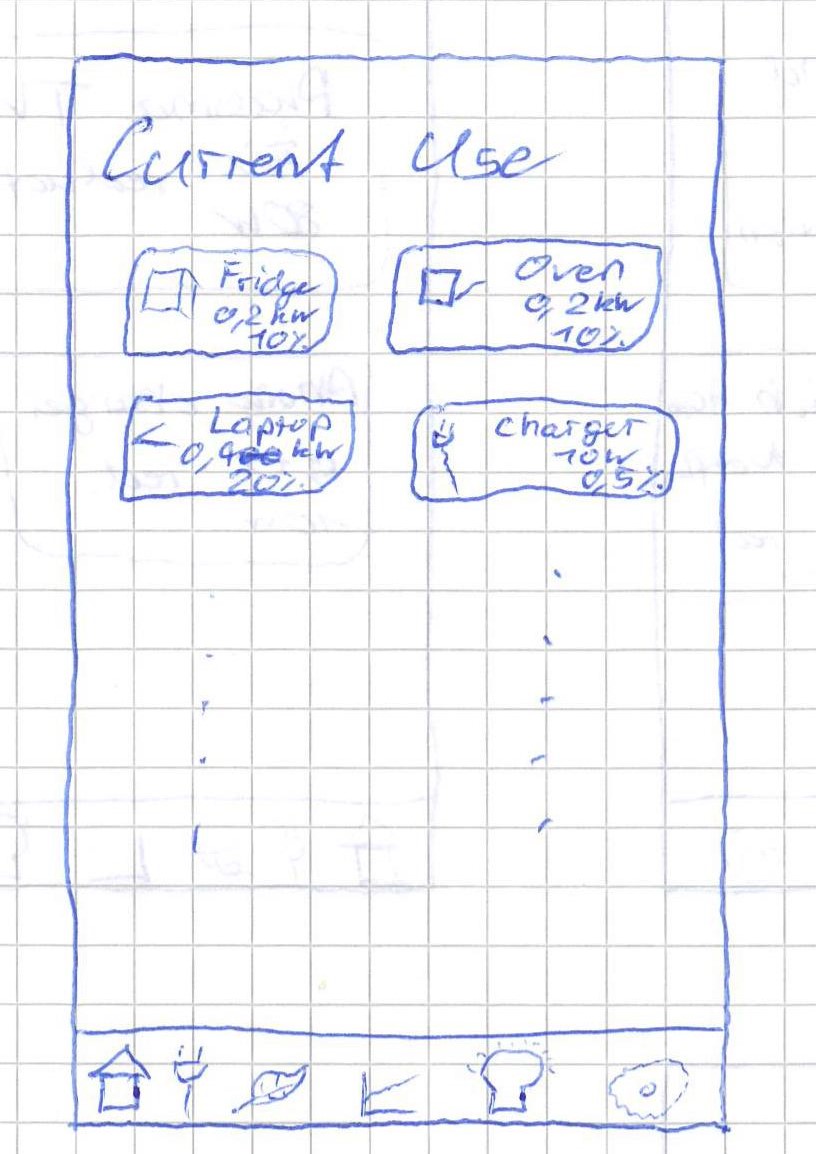 Current Use
Fridge
0,2 kW
10%
Oven
0,2 kW
10%
Laptop
kW
20%
Charger
10W
0,5%